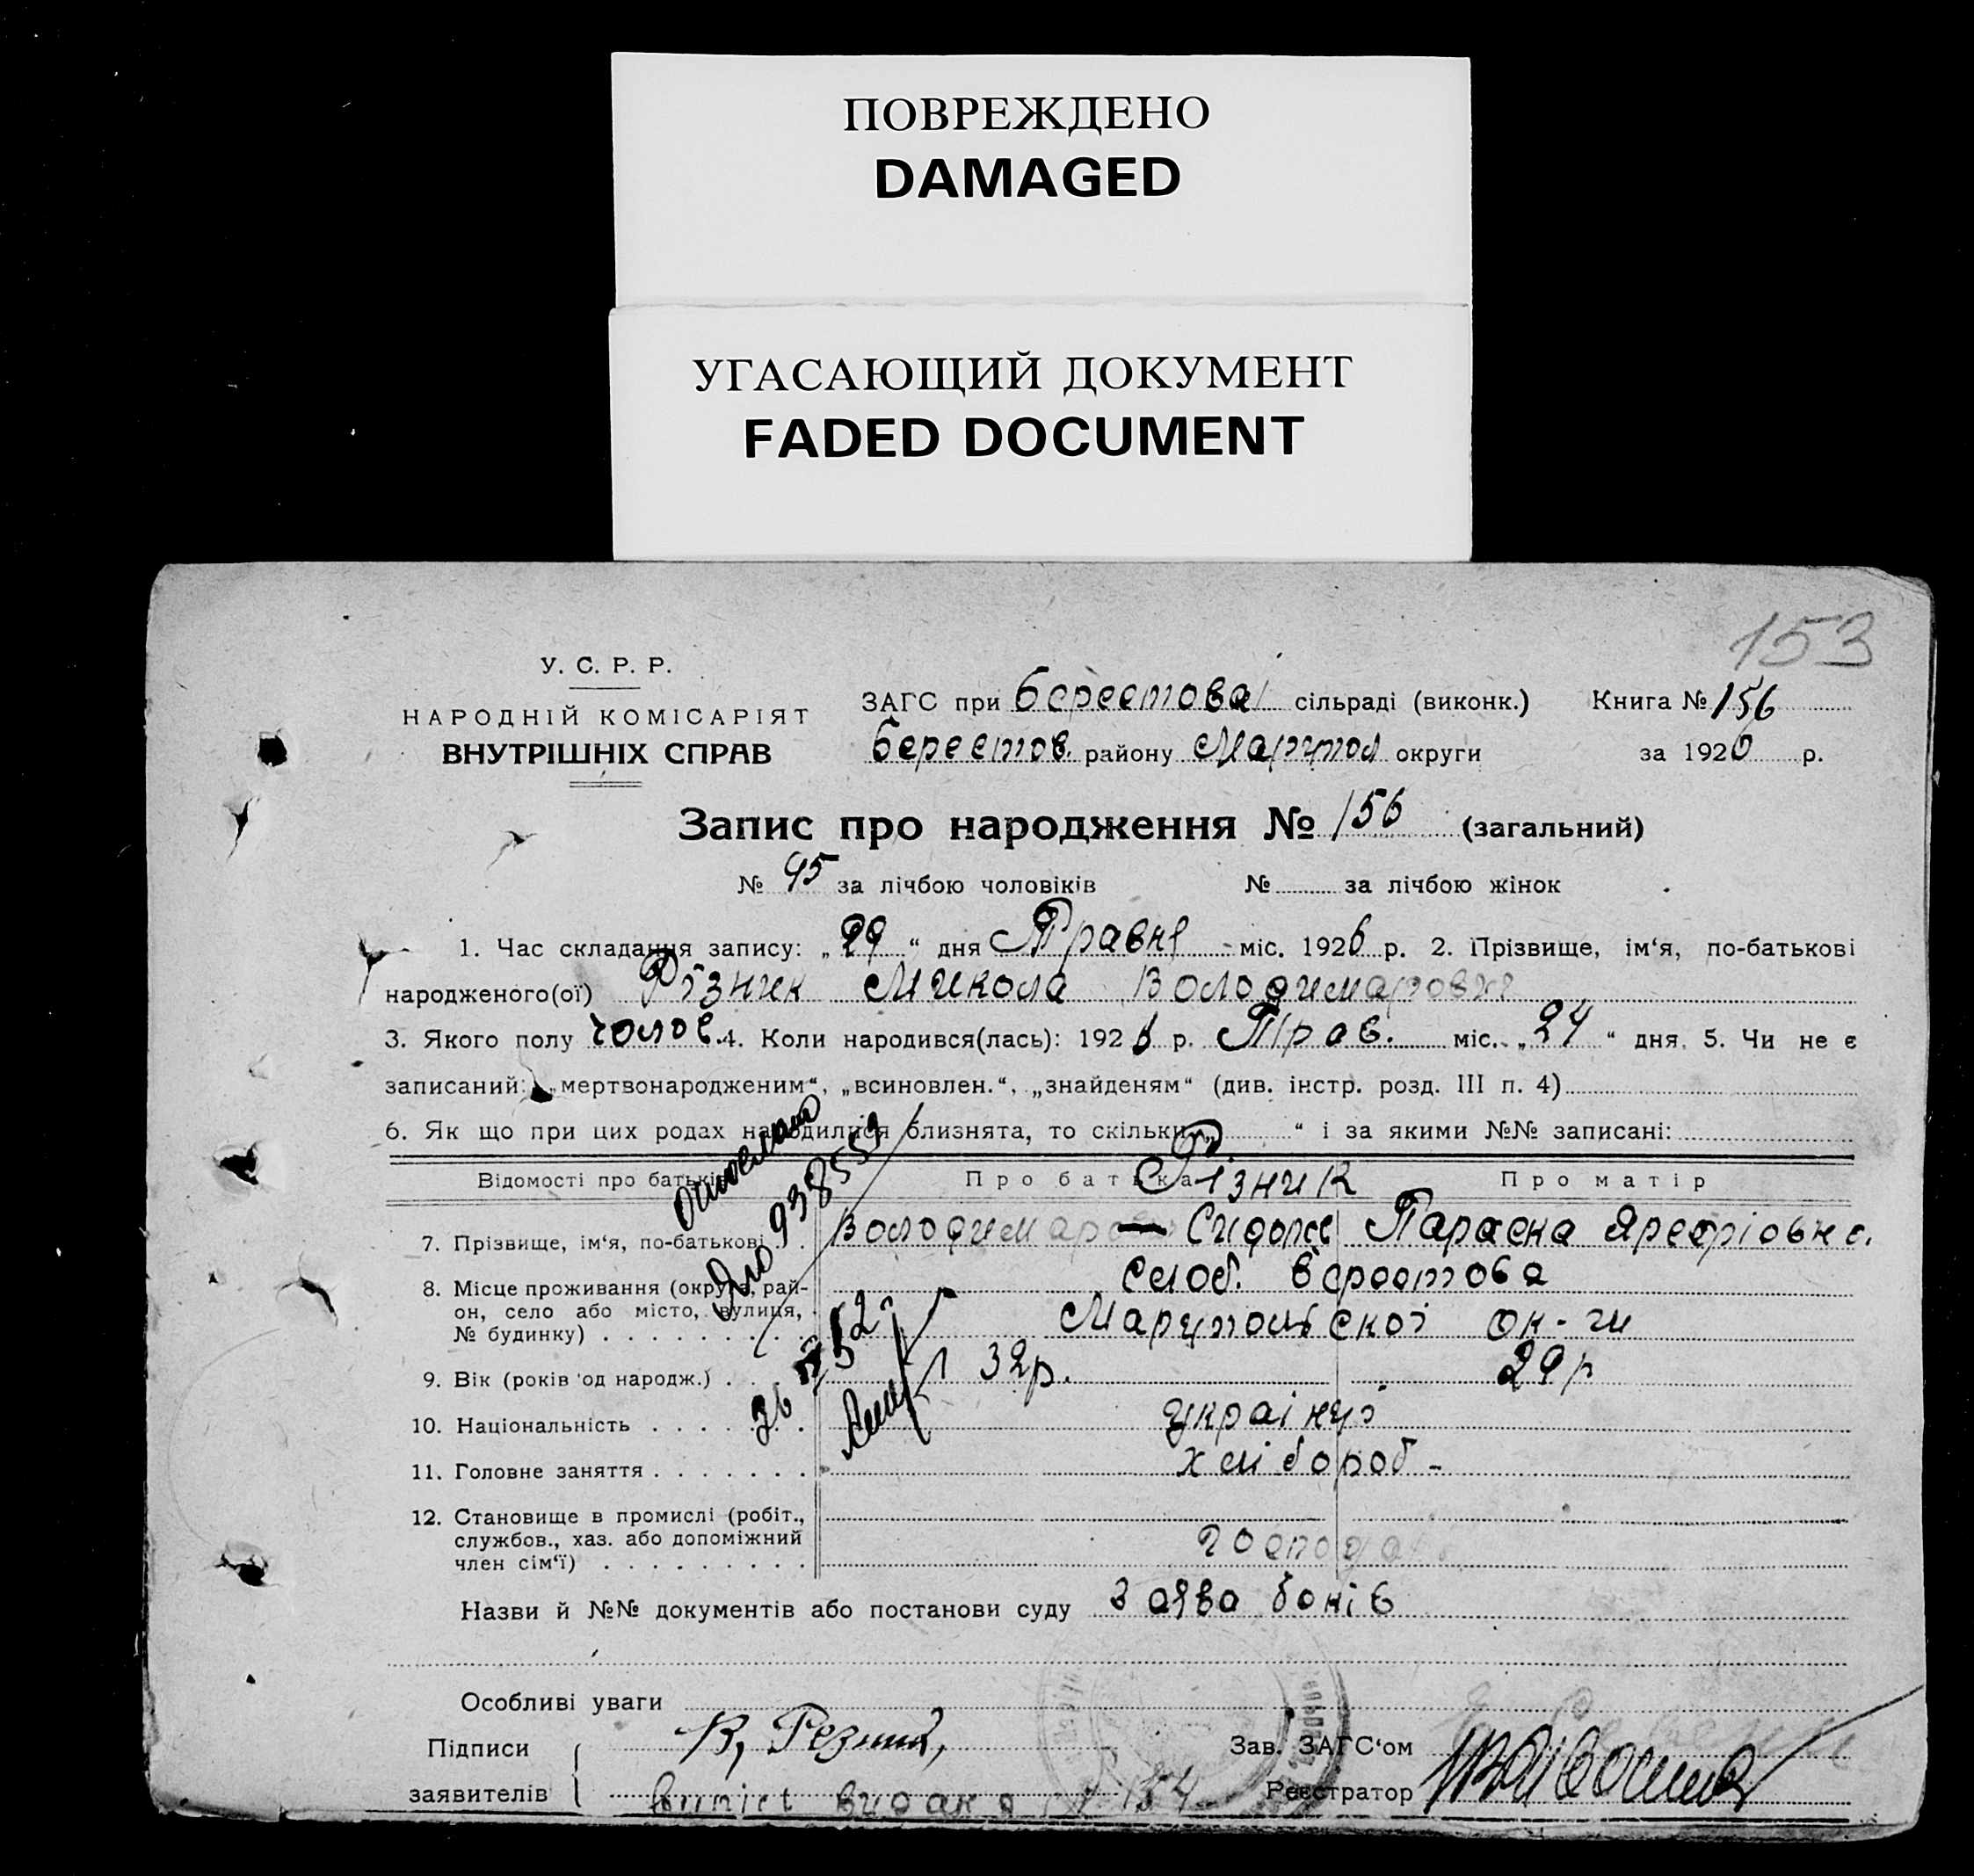 ПОВРЕЖДЕНО
DAMAGED
УГАСАЮЩИЙ ДОКУМЕНТ
FADED DOCUMENT
153
У. С. Р. Р.
НАРОДНІЙ КОМІСАРІЯТ
ВНУТРІШНІХ СПРАВ
ЗАГС при Берестова сільраді (виконк.) Книга № 156
Берестов. району Маріупол округи за 1926 р.
Запис про народження № 156 (загальний)
№ 95 за лічбою чоловіків № за лічбою жінок
1. Час складання запису: „29“ дня Травня міс. 1926 р. 2. Прізвище, ім‘я, по-батькові
народженого(ої) Різник Микола Володимарович
3. Якого полу чолов. 4. Коли народився(лась): 1926 р. Трав. міс. „24“ дня. 5. Чи не є
записаний: „мертвонародженим“, „всиновлен.“, „знайденям“ (див. інстр. розд. III п. 4)
6. Як що при цих родах народилися близнята, то скільки „ “ і за якими №№ записані:
Відомості про батьків Про батька Про матір
Різник
7. Прізвище, ім‘я, по-батькові Володимар Сидоров Параска
8. Місце проживання (округа, рай- Слоб. Берестова
он, село або місто, вулиця,
№ будинку) Маріупольської ок-ги
9. Вік (років од народж.) 32р. 29р
10. Національність українці
11. Головне заняття хлібороб-
12. Становище в промислі (робіт.,
службов., хаз. або допоміжний
член сім‘ї) господар
Назви й №№ документів або постанови суду Заява
Особливі уваги
Підписи В. Резник Зав. ЗАГС‘ом
заявителів видана Реєстратор